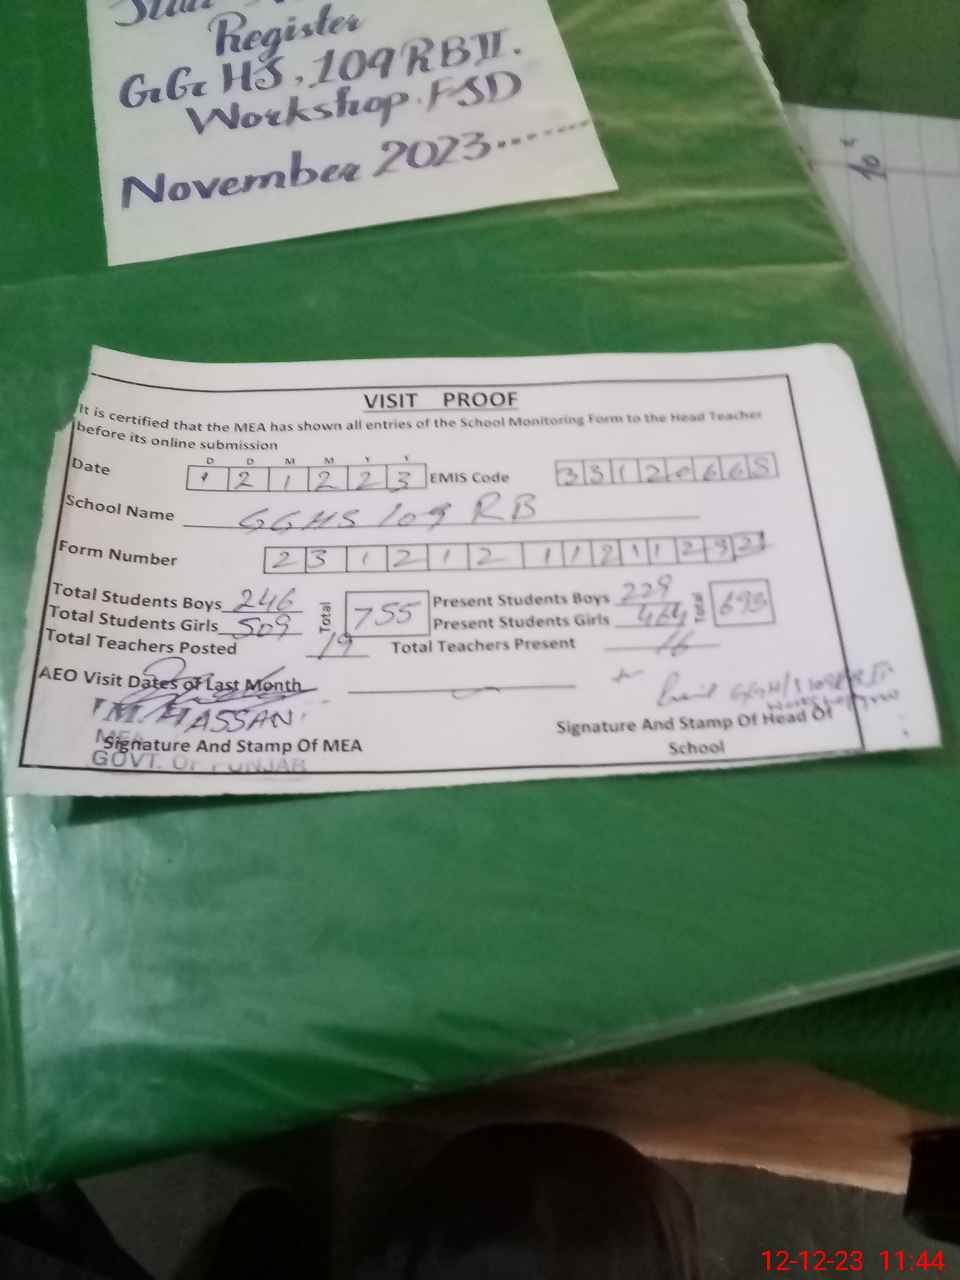 Register
GGHS, 109 RB II.
Workshop. FSD
November 2023
VISIT PROOF
It is certified that the MEA has shown all entries of the School Monitoring Form to the Head Teacher
before its online submission
D D M M Y Y
Date 1 2 1 2 2 3 EMIS Code
School Name GGHS 109 RB
Form Number
Total Students Boys 246 Total 755 Present Students Boys 229
Total Students Girls 509 Present Students Girls 464 693
Total Teachers Posted 19 Total Teachers Present 16
AEO Visit Dates of Last Month
M. HASSAN
Signature And Stamp Of MEA Signature And Stamp Of Head Of
School
GOVT. OF PUNJAB
12-12-23 11:44